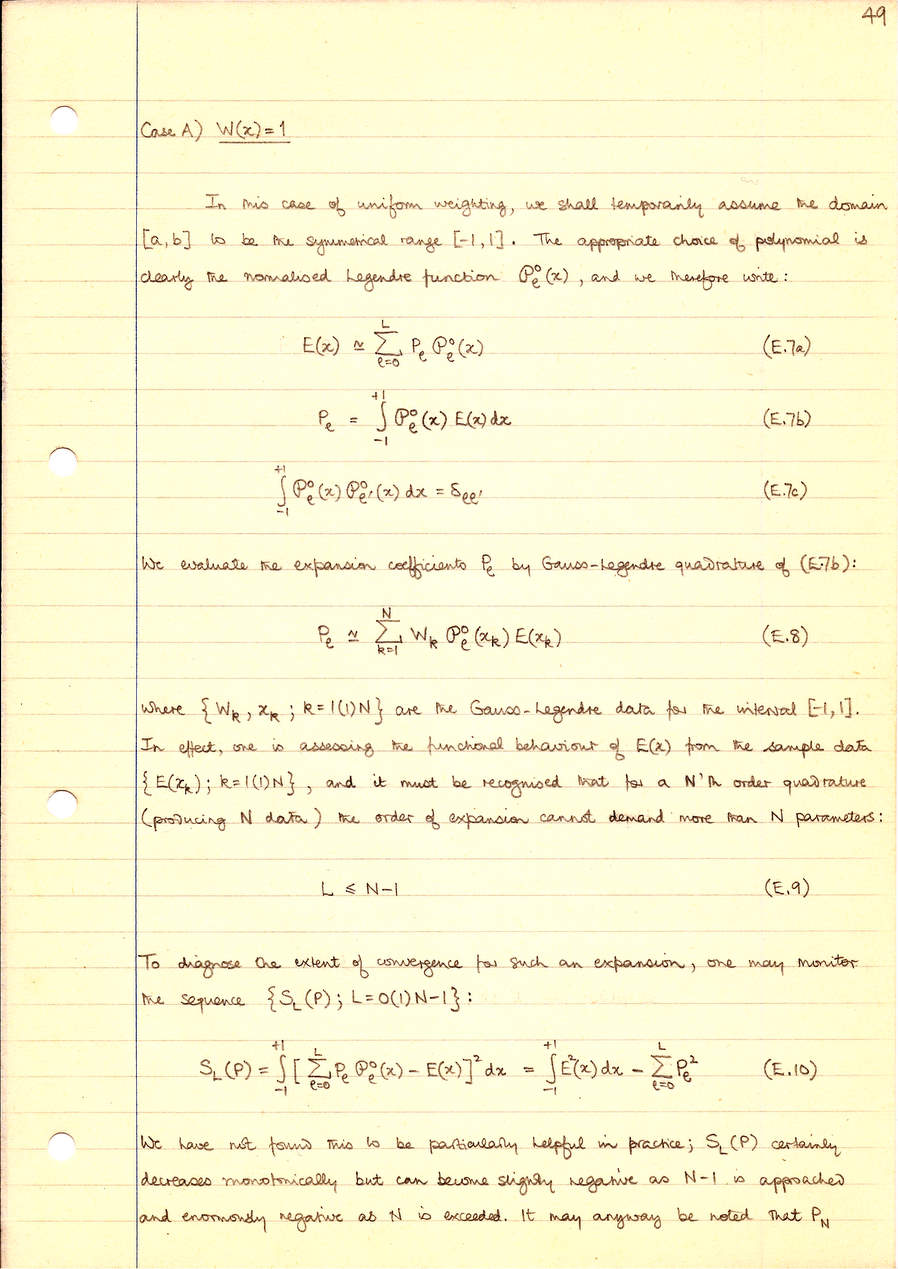 49
Case A) W(x)=1
In this case of uniform weighting, we shall temporarily assume the domain
[a,b] to be the symmetrical range [-1,1]. The appropriate choice of polynomial is
clearly the normalised Legendre function 𝒫ℓ⁰(x), and we therefore write:
E(x) ≃ ∑_{ℓ=0}^{L} Pℓ 𝒫ℓ⁰(x) (E.7a)
Pℓ = ∫_{-1}^{+1} 𝒫ℓ⁰(x) E(x) dx (E.7b)
∫_{-1}^{+1} 𝒫ℓ⁰(x) 𝒫ℓ'⁰(x) dx = δℓℓ' (E.7c)
We evaluate the expansion coefficients Pℓ by Gauss-Legendre quadrature of (E.7b):
Pℓ ≃ ∑_{k=1}^{N} W_k 𝒫ℓ⁰(x_k) E(x_k) (E.8)
where {W_k, x_k ; k=1(1)N} are the Gauss-Legendre data for the interval [-1,1].
In effect, one is assessing the functional behaviour of E(x) from the sample data
{E(x_k); k=1(1)N}, and it must be recognised that for a N'th order quadrature
(producing N data) the order of expansion cannot demand more than N parameters:
L ≤ N-1 (E.9)
To diagnose the extent of convergence for such an expansion, one may monitor
the sequence {S_L(P); L=0(1)N-1}:
S_L(P) = ∫_{-1}^{+1} [∑_{ℓ=0}^{L} Pℓ 𝒫ℓ⁰(x) - E(x)]² dx = ∫_{-1}^{+1} E²(x) dx - ∑_{ℓ=0}^{L} Pℓ² (E.10)
We have not found this to be particularly helpful in practice; S_L(P) certainly
decreases monotonically but can become slightly negative as N-1 is approached
and enormously negative as N is exceeded. It may anyway be noted that P_N